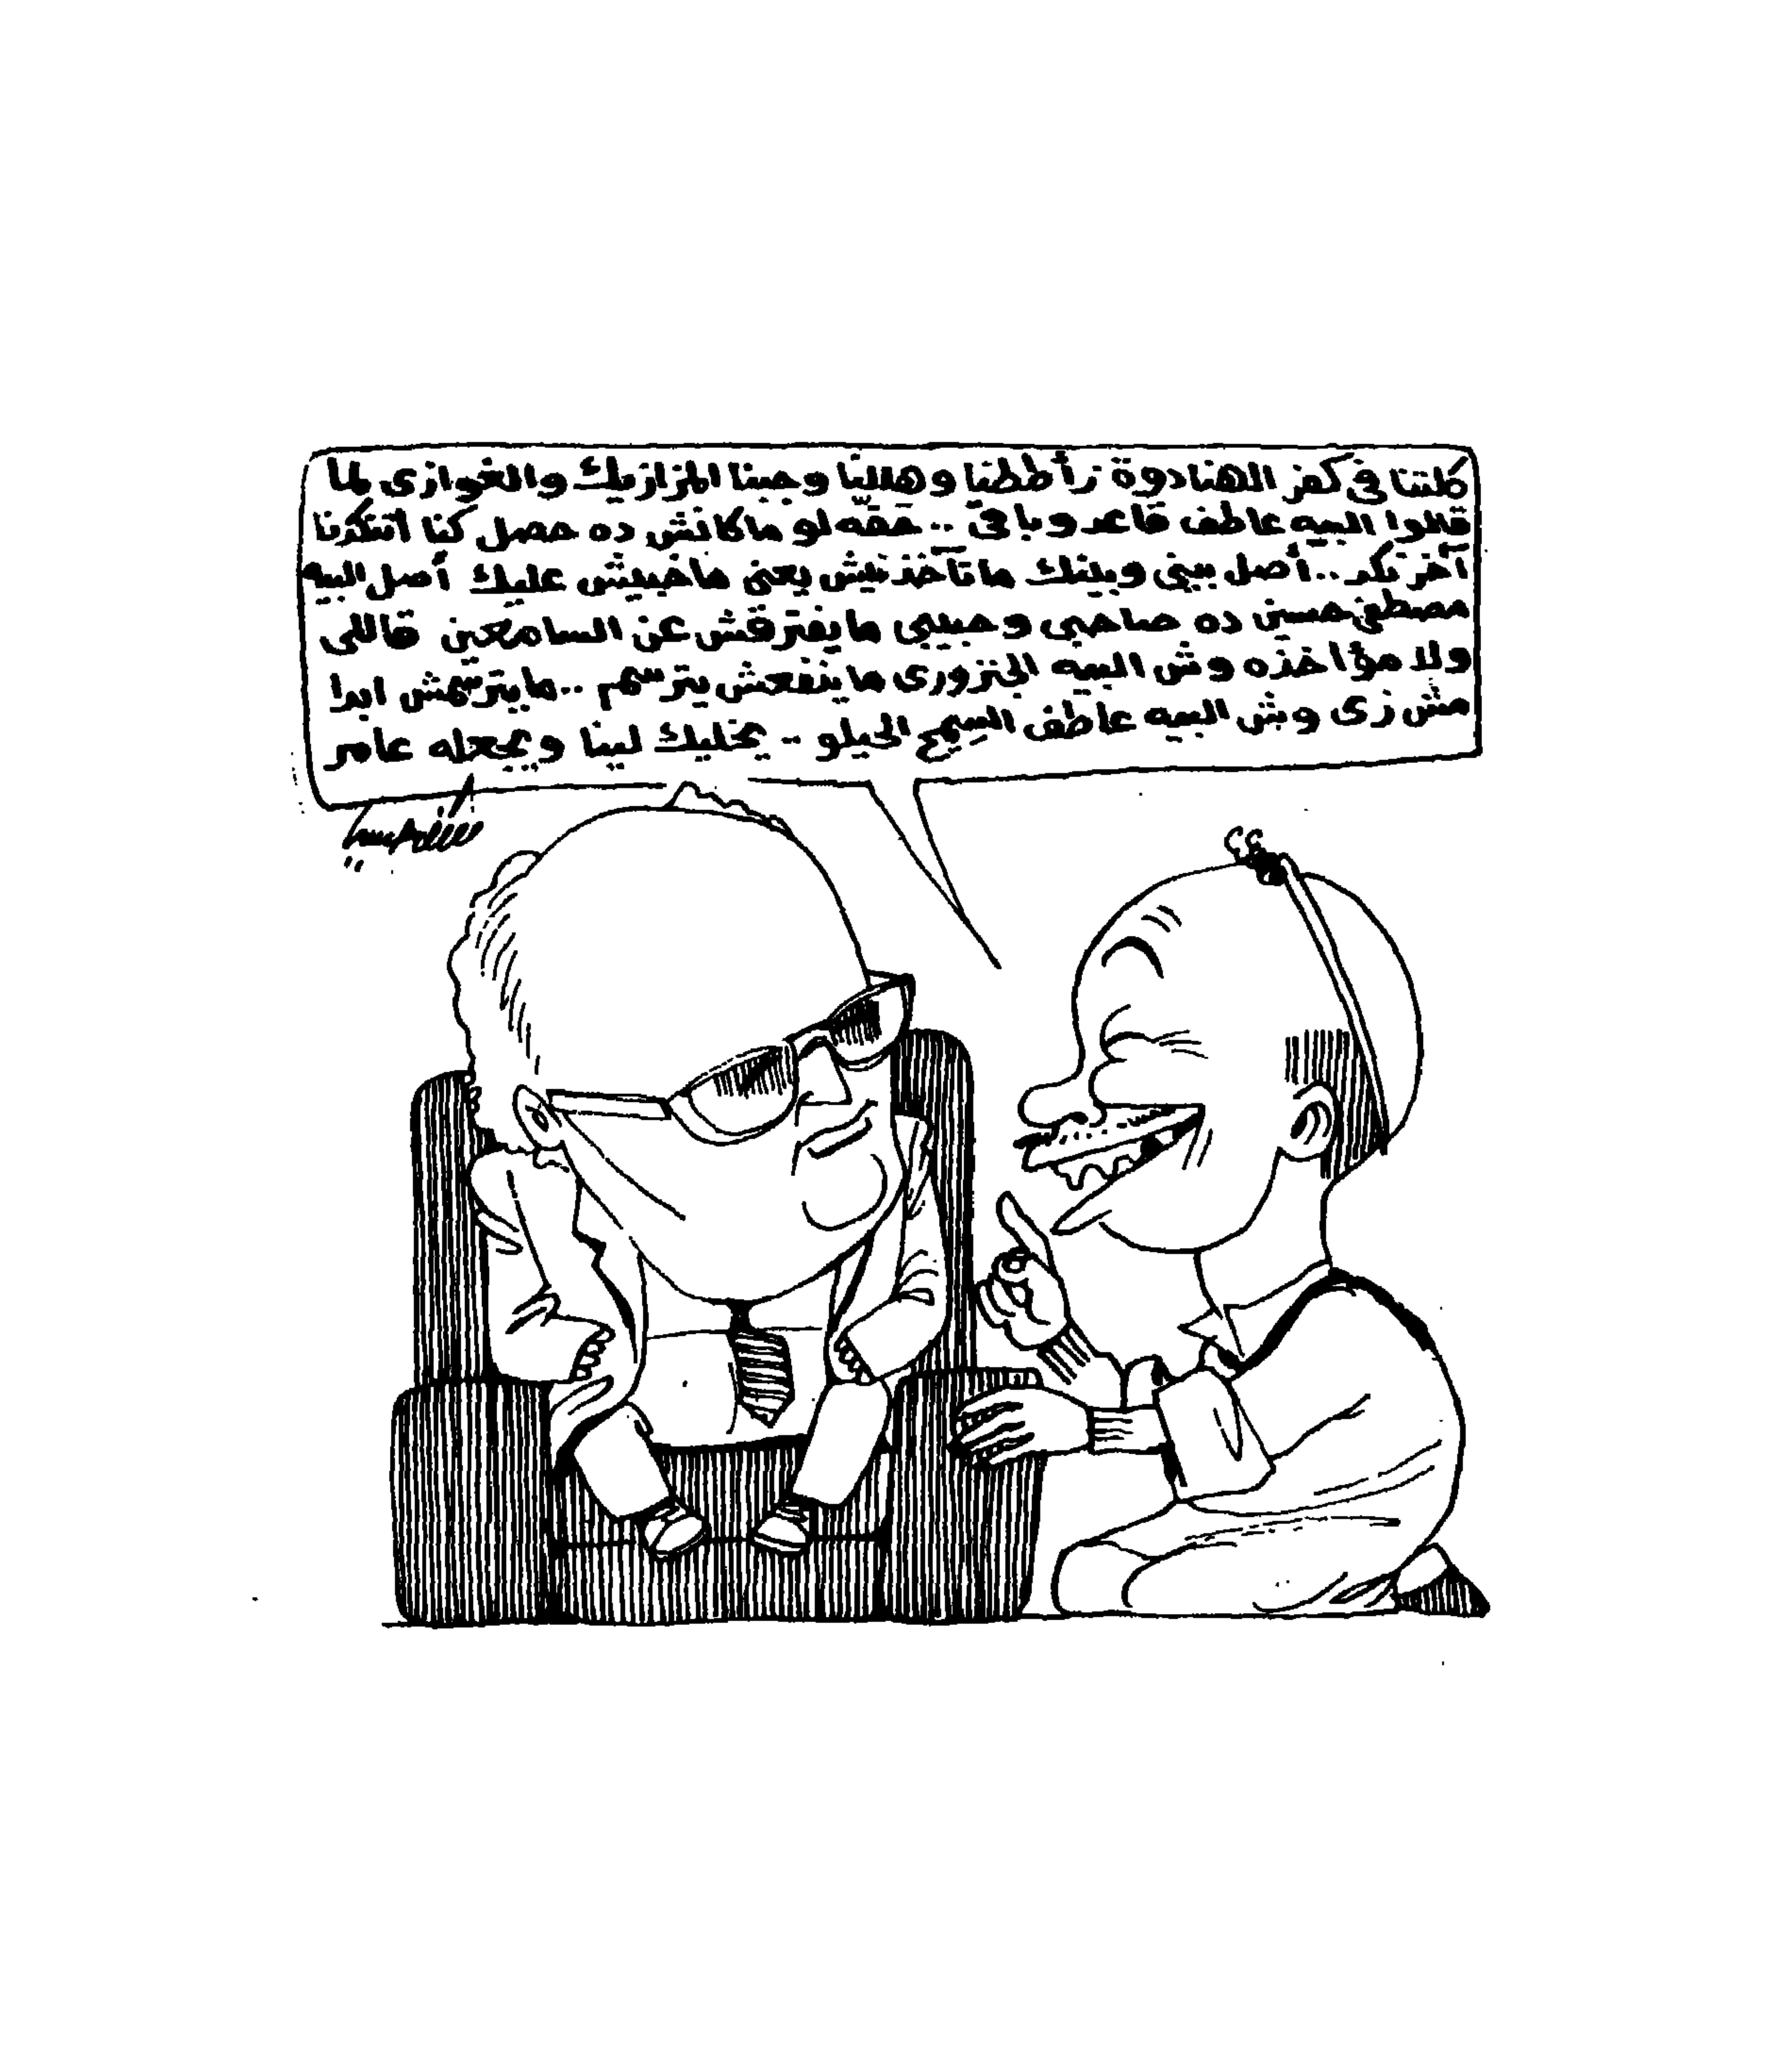 كلتنا فى كفر الهنادوة زأططنا وهللنا وجبنا المزازيك والغوازى لما
قالوا البيه عاطف قاعد وباقى .. حقه لو ماكانش ده حصل كنا اتنكدنا
آخر نكد .. أصل بينى وبينك ما تآخذنيش يعنى ماخبيش عليك أصل البيه
مصطفى حسين ده صاحبى وحبيبى ما يفترقش عن السامعين قاللى
ولا مؤاخذه وش البيه الجنزورى ما ينفعش يترسم .. ما يترسمش ابدا
مش زى وش البيه عاطف السمح الحلو .. يخليك لينا ويجعله عامر